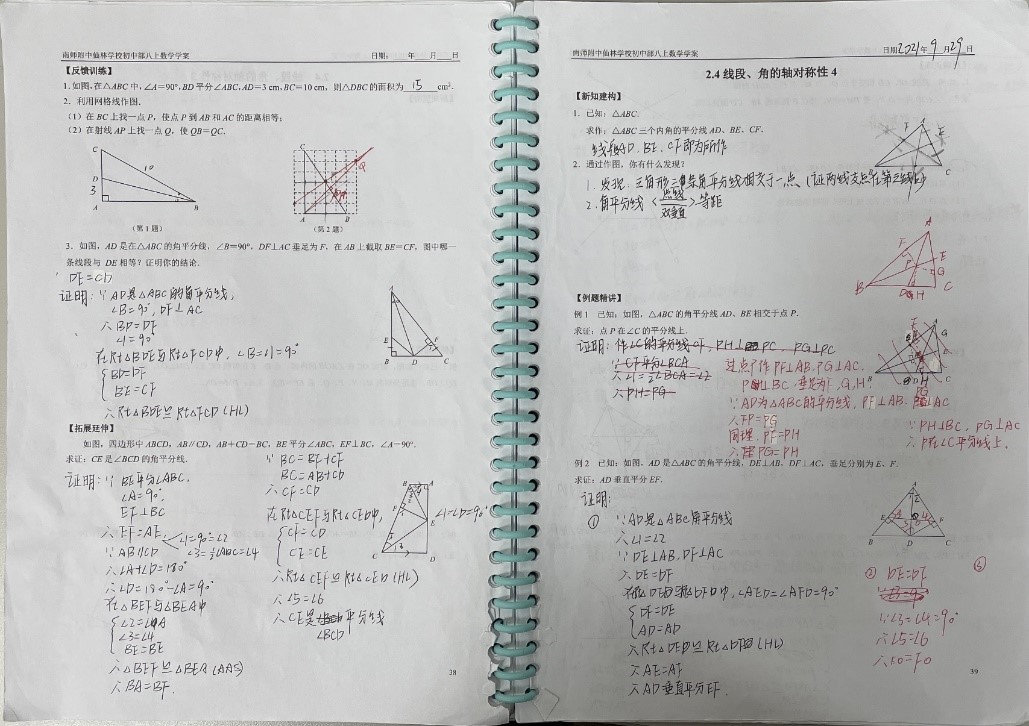 南师附中仙林学校初中部八上数学学案 日期: 年 月 日
【反馈训练】
1.如图,在△ABC中,∠A=90°,BD平分∠ABC,AD=3 cm,BC=10 cm,则△DBC的面积为 15 cm².
2. 利用网格线作图.
(1)在BC上找一点P,使点P到AB和AC的距离相等;
(2)在射线AP上找一点Q,使QB=QC.
C
10
D
3
A B
C
Q
A B
(第1题) (第2题)
3. 如图,AD是在△ABC的角平分线,∠B=90°,DF⊥AC垂足为F,在AB上截取BE=CF,图中哪一
条线段与DE相等?证明你的结论.
DE=CD
证明:∵AD是△ABC的角平分线,
∠B=90°,DF⊥AC
∴BD=DF
∠1=90°
在Rt△BDE与Rt△FCD中,∠B=∠1=90°
BD=DF
BE=CF
∴Rt△BDE≌Rt△FCD(HL)
A
E
F
B D C
【拓展延伸】
如图,四边形中ABCD,AB∥CD,AB+CD=BC,BE平分∠ABC,EF⊥BC,∠A=90°.
求证:CE是∠BCD的角平分线.
证明:∵BE平分∠ABC.
∠A=90°
EF⊥BC
∴EF=AE
∠1=90°=∠2
∠3=½∠ABC=∠4
∵AB∥CD
∴∠A+∠D=180°
∴∠D=180°-∠A=90°
在△BEF与△BEA中
∠2=∠A
∠3=∠4
BE=BE
∴△BEF≌△BEA(AAS)
∴BA=BF.
∵BC=BF+CF
BC=AB+CD
∴CF=CD
在Rt△CEF与Rt△CED中,∠1=∠D=90°
CF=CD
CE=CE
∴Rt△CEF≌Rt△CED(HL)
∴∠5=∠6
∴CE是平分线
∠BCD
B A
F
E
C D
38
南师附中仙林学校初中部八上数学学案 日期2021年9月29日
2.4 线段、角的轴对称性 4
【新知建构】
1. 已知:△ABC.
求作:△ABC三个内角的平分线AD、BE、CF.
线段AD、BE、CF即为所作
2. 通过作图,你有什么发现?
1. 发现:三角形三条角平分线相交于一点(证两线交点在第三线上)
2. 角平分线 点线 双垂直 等距
A
F
E
P
G
B D H C
【例题精讲】
例1 已知:如图,△ABC的角平分线AD、BE相交于点P.
求证:点P在∠C的平分线上.
证明:作∠C的平分线CF,PH⊥PC,PG⊥PC
∵CF平分∠BCA
∴∠1=½∠BCA=∠2
∴PH=PG
过点P作PF⊥AB,PG⊥AC.
PH⊥BC,垂足为F,G,H.
∵AD为△ABC的平分线,PF⊥AB,PG⊥AC
∴FP=PG
同理,PF=PH
∴PG=PH
∵PH⊥BC,PG⊥AC
∴P在∠C平分线上.
例2 已知:如图,AD是△ABC的角平分线,DE⊥AB,DF⊥AC,垂足分别为E、F.
求证:AD垂直平分EF.
证明:
① ∵AD是△ABC角平分线
∴∠1=∠2
∵DE⊥AB,DF⊥AC
∴DE=DF
在Rt△DEA与Rt△DFD中,∠AED=∠AFD=90°
DF=DE
AD=AD
∴Rt△DED≌Rt△DFD(HL)
∴AE=AF
∴AD垂直平分EF.
A
E F
B D C
② DE=DF
∵∠3=∠4=90°
∴∠5=∠6
∴EO=FO
③
39